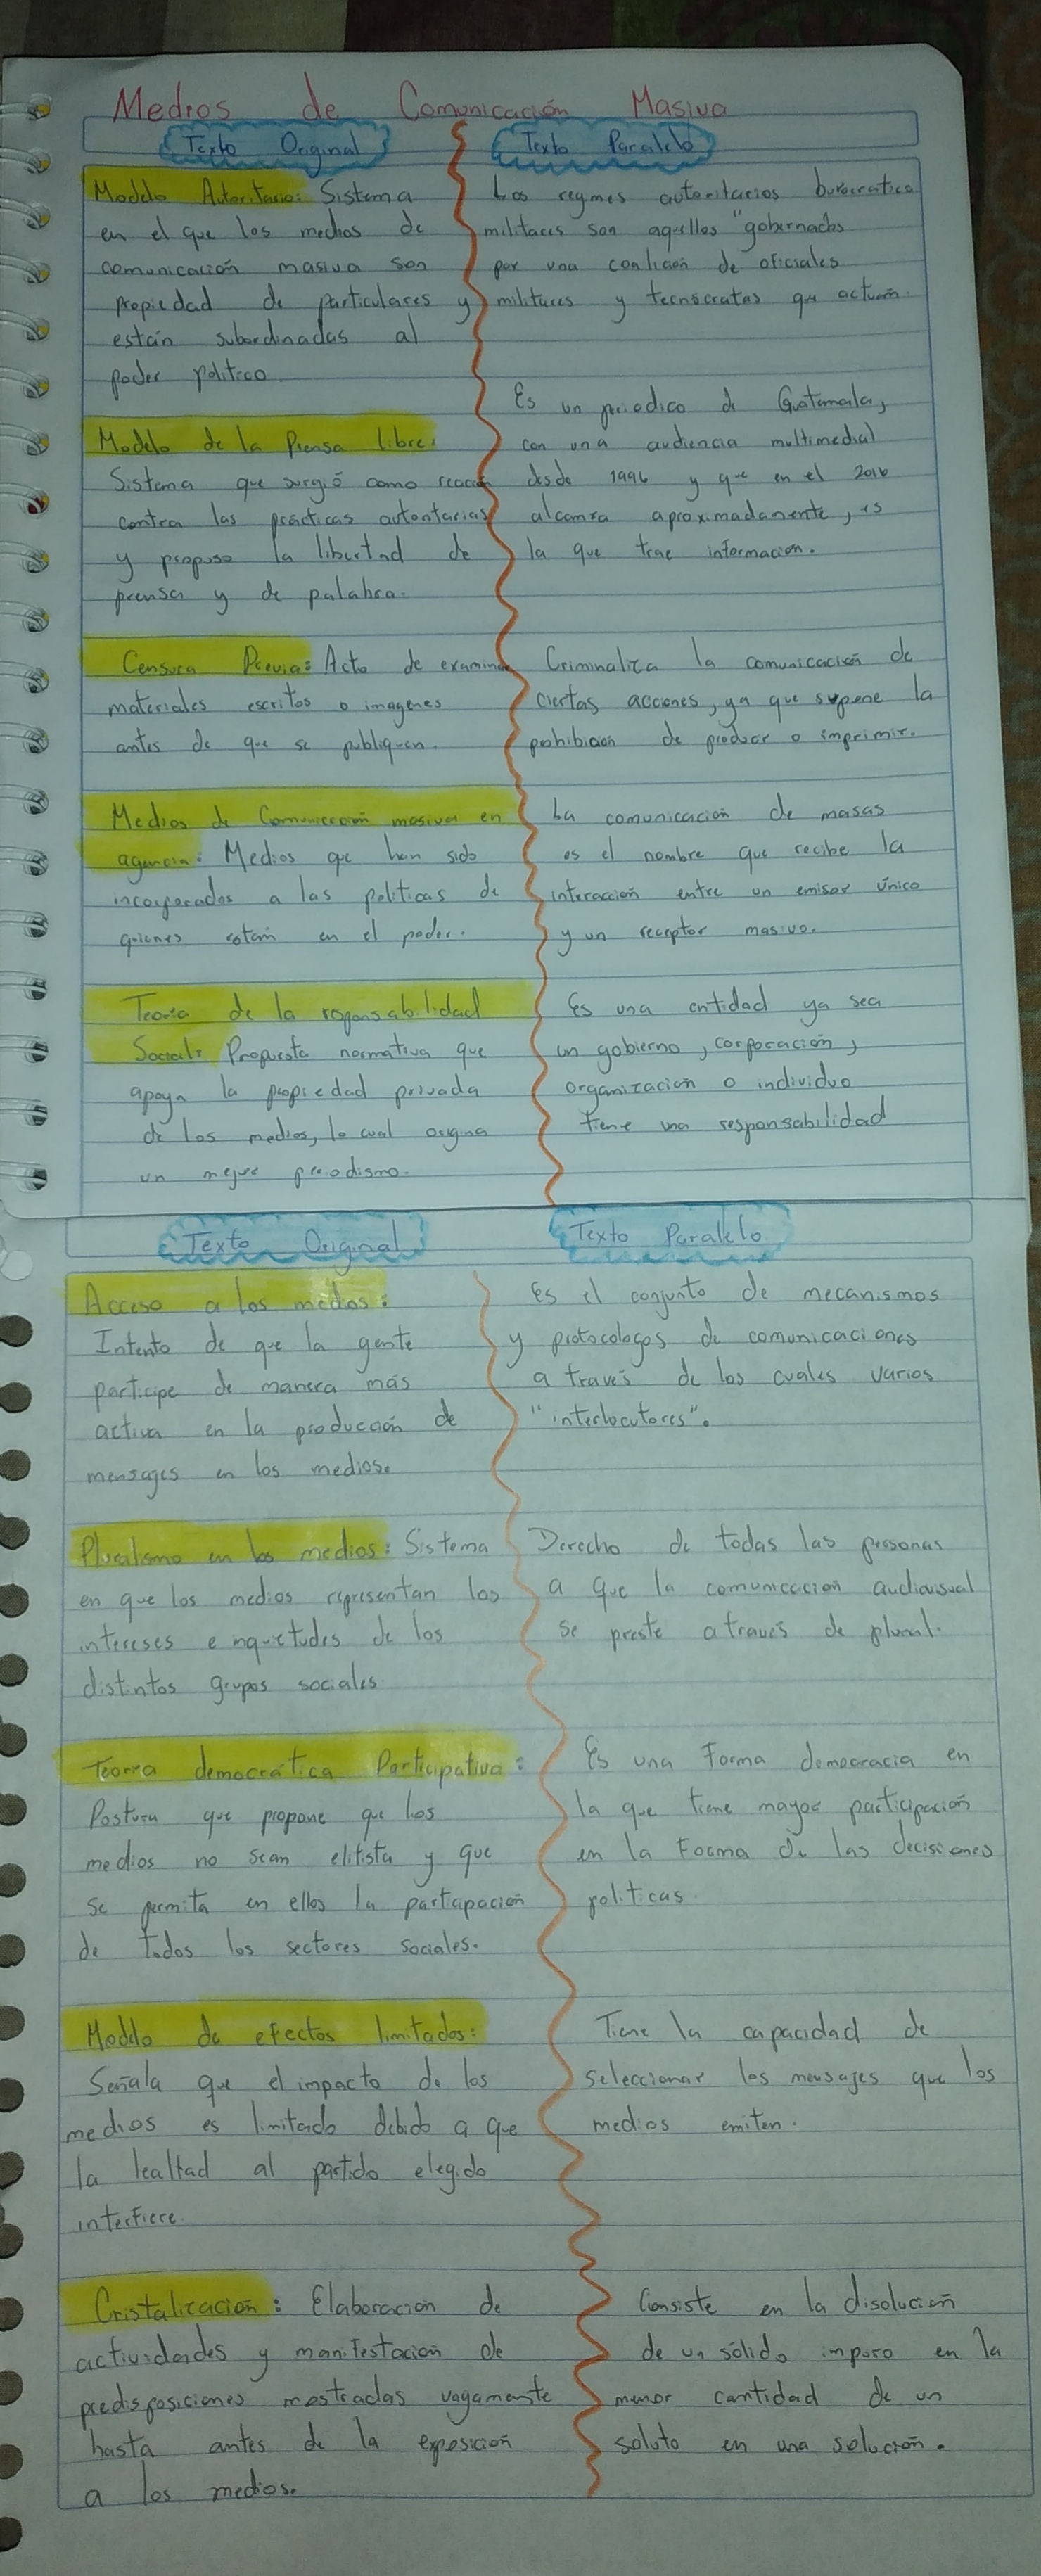 Medios de Comunicación Masiva
Texto Original
Texto Paralelo
Modelo Autoritario: Sistema
en el que los medios de
comunicación masiva son
propiedad de particulares y
están subordinadas al
poder politico.
Los regmes autoritarios burocratico
militares son aquellos "gobernados
por una coalición de oficiales
militares y tecnócratas que actuan.
Modelo de la Prensa libre:
Sistema que surgió como reacción
contra las prácticas autoritarias
y propuso la libertad de
prensa y de palabra.
Es un periodico de Guatemala,
con una audiencia multimedial
desde 1996 y que en el 2016
alcanza aproximadamente, es
la que trae informacion.
Censura Previa: Acto de examinar
materiales escritos o imagenes
antes de que se publiquen.
Criminaliza la comunicación de
ciertas acciones, ya que supone la
prohibición de producir o imprimir.
Medios de Comunicación masiva en
agencia: Medios que han sido
incorporados a las politicas de
quienes estan en el poder.
La comunicación de masas
es el nombre que recibe la
interacción entre un emisor único
y un receptor masivo.
Teoria de la responsabilidad
Social: Propuesta normativa que
apoya la propiedad privada
de los medios, lo cual origina
un mejor periodismo.
Es una entidad ya sea
un gobierno, corporación,
organizacion o individuo
tiene una responsabilidad
Texto Original
Texto Paralelo
Acceso a los medios:
Intento de que la gente
participe de manera más
activa en la producción de
mensajes en los medios.
Es el conjunto de mecanismos
y protocologos de comunicaciones
a través de los cuales varios
"interlocutores".
Pluralismo en los medios: Sistema
en que los medios representan los
intereses e inquietudes de los
distintos grupos sociales.
Derecho de todas las personas
a que la comunicacion audiovisual
se preste através de plural.
Teoria democrática Participativa:
Postura que propone que los
medios no sean elitista y que
se permita en ellos la participación
de todos los sectores sociales.
Es una Forma democracia en
la que tiene mayor participación
en la Forma de las decisiones
politicas.
Modelo de efectos limitados:
Señala que el impacto de los
medios es limitado debido a que
la lealtad al partido elegido
interfiere.
Tiene la capacidad de
seleccionar los mensajes que los
medios emiten.
Cristalizacion: Elaboracion de
actividades y manifestacion de
predisposiciones mostradas vagamente
hasta antes de la exposición
a los medios.
Consiste en la disolución
de un sólido impuro en la
menor cantidad de un
soluto en una solución.